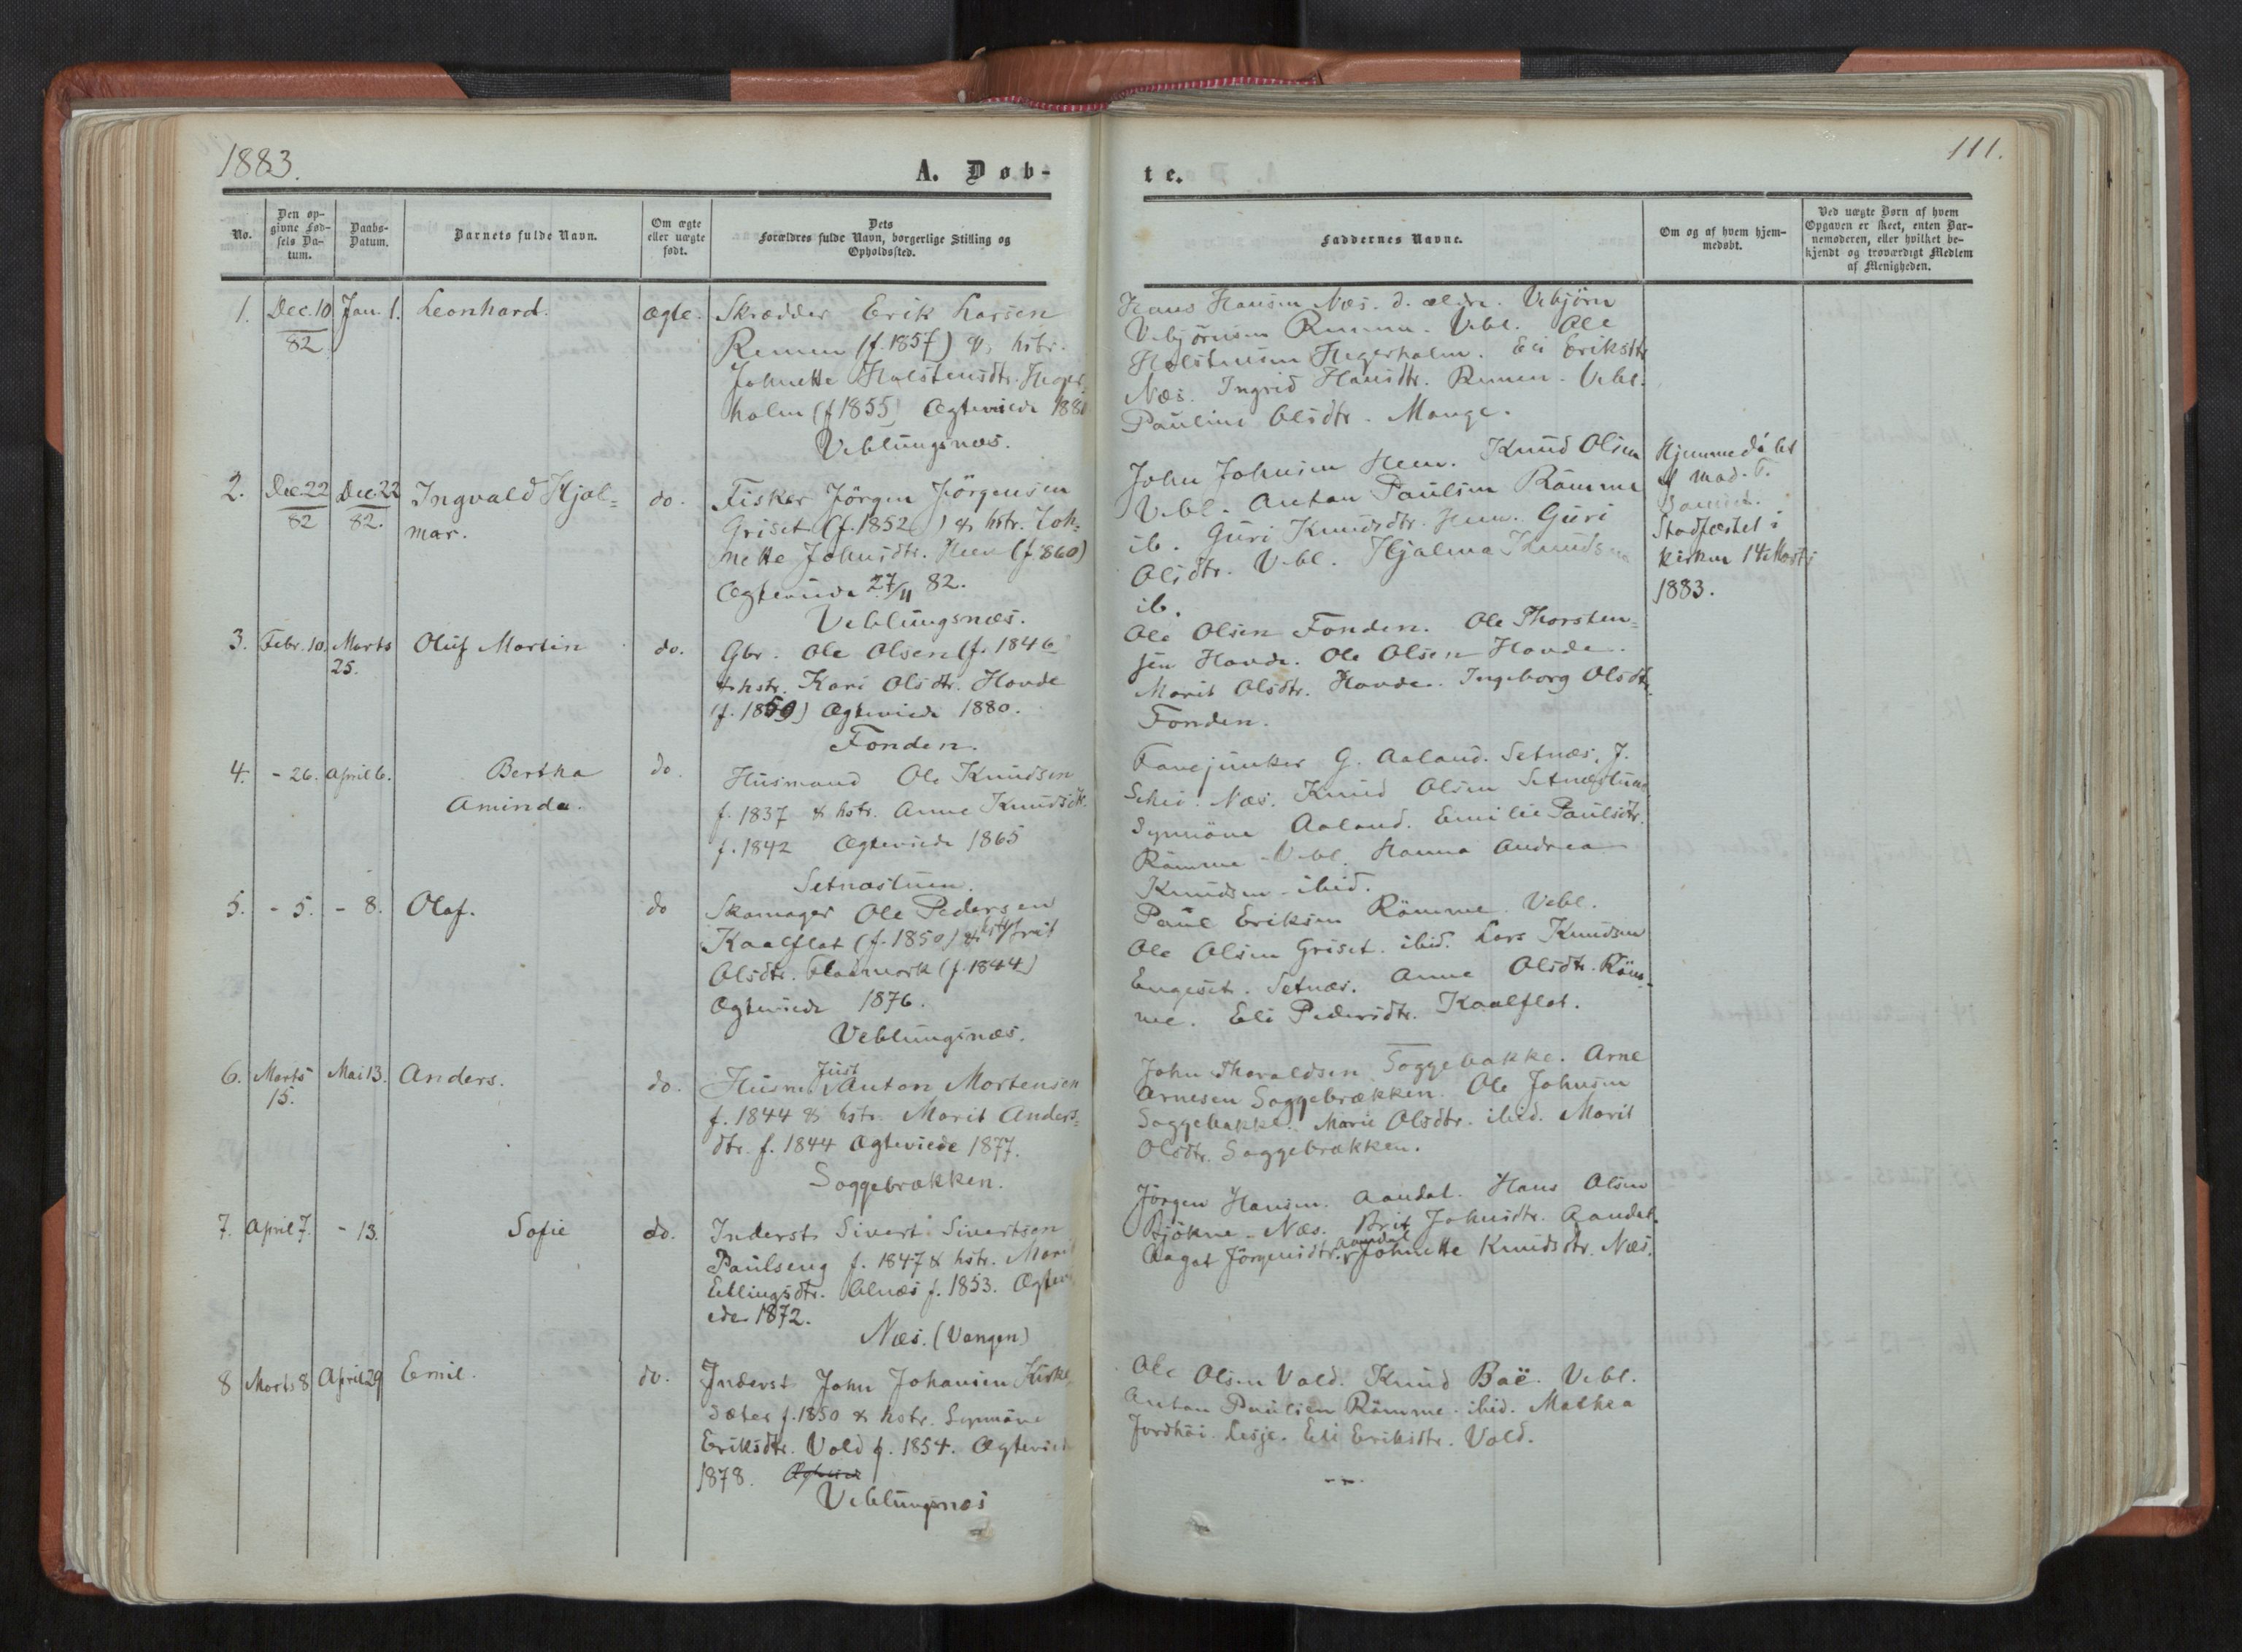 1883.
A. Døb-
No.
Den op-
givne Fød-
sels Da-
tum.
Daabs-
Datum.
Barnets fulde Navn.
Om ægte
eller uægte
født.
Dets
Forældres fulde Navn, borgerlige Stilling og
Opholdssted.
1. Dec. 10 Jan. 1. Leonhard. ægte. Skrædder Erik Larsen
82 Remen (f. 1857) & hstr.
Johnette Halstensdtr. Heger-
holm (f 1855) Ægteviede 188
Veblungsnæs.
2. Dec. 22 Dec. 22 Ingvald Hjal= do. Fisker Jörgen Jörgensen
82 82. mar. Griset (f. 1852) & hstr. Joh=
nette Johnsdtr. Heen (f 860)
Ægteviede 27/11 82.
Veblungsnæs.
3. Febr. 10. Marts Oluf Martin do. Gbr. Ole Olsen (f. 1846
25. & hstr. Kari Olsdtr. Hovde
(f. 1850) Ægteviede 1880.
Fonden.
4. - 26. April 6. Bertha do. Husmand Ole Knudsen
Aminda. f. 1837 & hstr. Anne Knudsdtr.
f. 1842 Ægteviede 1865
Setnæstuen.
5. - 5. - 8. Olaf. do Skomager Ole Pedersen
Kaalflot (f. 1850) & hstr. Brit
Olsdtr. Fladmark (f. 1844)
Ægteviede 1876.
Veblungsnæs.
6. Marts Mai 13. Anders. do. Husm. Just Anton Mortensen
15. f. 1844 & hstr. Marit Anders=
dtr. f. 1844 Ægteviede 1877.
Soggebrækken.
7. April 7. - 13. Sofie do. Inderst Sivert Sivertsen
Paulseng f. 1847 & hstr. Mari
Ellingsdtr. Alnæs f. 1853. Ægtev
ede 1872.
Næs. (Vangen)
8 Marts 8 April 29 Emil. do. Inderst John Johansen Kirke-
sæter f. 1850 & hstr. Synnöve
Eriksdtr. Vold f. 1854. Ægtevied
1878. Ægteviede
Veblungsnæs
te.
111.
Faddernes Navne.
Om og af hvem hjem-
medøbt.
Ved uægte Børn af hvem
Opgaven er skeet, enten Bar-
nemoderen, eller hvilket be-
kjendt og troværdigt Medlem
af Menigheden.
Hans Hansen Næs. d. ældre. Vebjörn
Vebjörnsen Remmen. Vebl. Ole
Halstensen Hegerholm. Eli Eriksdtr
Næs. Ingrid Hansdtr. Remen. Vebl.
Pauline Olsdtr. Mange.
John Johnsen Heen. Knud Olsen
Vebl. Anton Paulsen Römme
ib. Guri Knudsdtr. Heen. Guri
Olsdtr. Vebl. Hjalma Knudsen
ib.
Hjemmedöbt
af Mad. T.
Stadfæstet i
kirken 14 Marts
1883.
Ole Olsen Fonden. Ole Thorsten=
sen Hovde. Ole Olsen Hovde.
Marit Olsdtr. Hovde. Ingeborg Olsdtr.
Fonden.
Fanejunker G. Aaland. Setnæs. J.
Næs. Knud Olsen Setnæstuen
Synnöve Aaland. Emilie Paulsdtr.
Römme Vebl. Hanna Andrea
Knudsen - ibid.
Paul Eriksen Römme. Vebl.
Ole Olsen Griset. ibid. Lars Knudsen
Engeset. Setnæs. Anne Olsdtr. Röm-
me. Eli Pedersdtr. Kaalflot.
John Thoraldsen Soggebakke. Arne
Arnesen Soggebrækken. Ole Johnsen
Soggebakke. Marie Olsdtr. ibid. Marit
Olsdtr. Soggebrækken.
Jörgen Hansen. Aandal. Hans Olsen
Bjökne - Næs. Brit Johnsdtr. Aandal.
Aagot Jörgensdtr. Aandal Johnette Knudsdtr. Næs.
Ole Olsen Vold. Knud Baë. Vebl.
Anton Paulsen Römme. ibid. Mathea
Jordhöi. Lesje. Eli Eriksdtr. Vold.